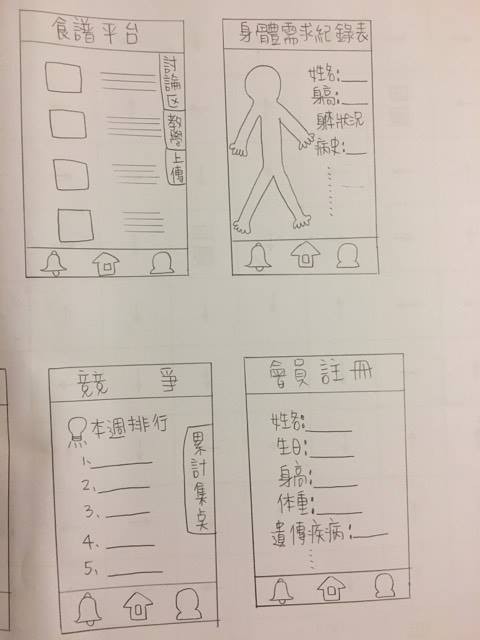 食譜平台
討論区
教學
上傳
身體需求紀錄表
姓名:
身高:
身體狀況
病史:
競爭
本週排行
1.
2.
3.
4.
5.
累計集点
會員註冊
姓名:
生日:
身高:
体重:
遺傳疾病: